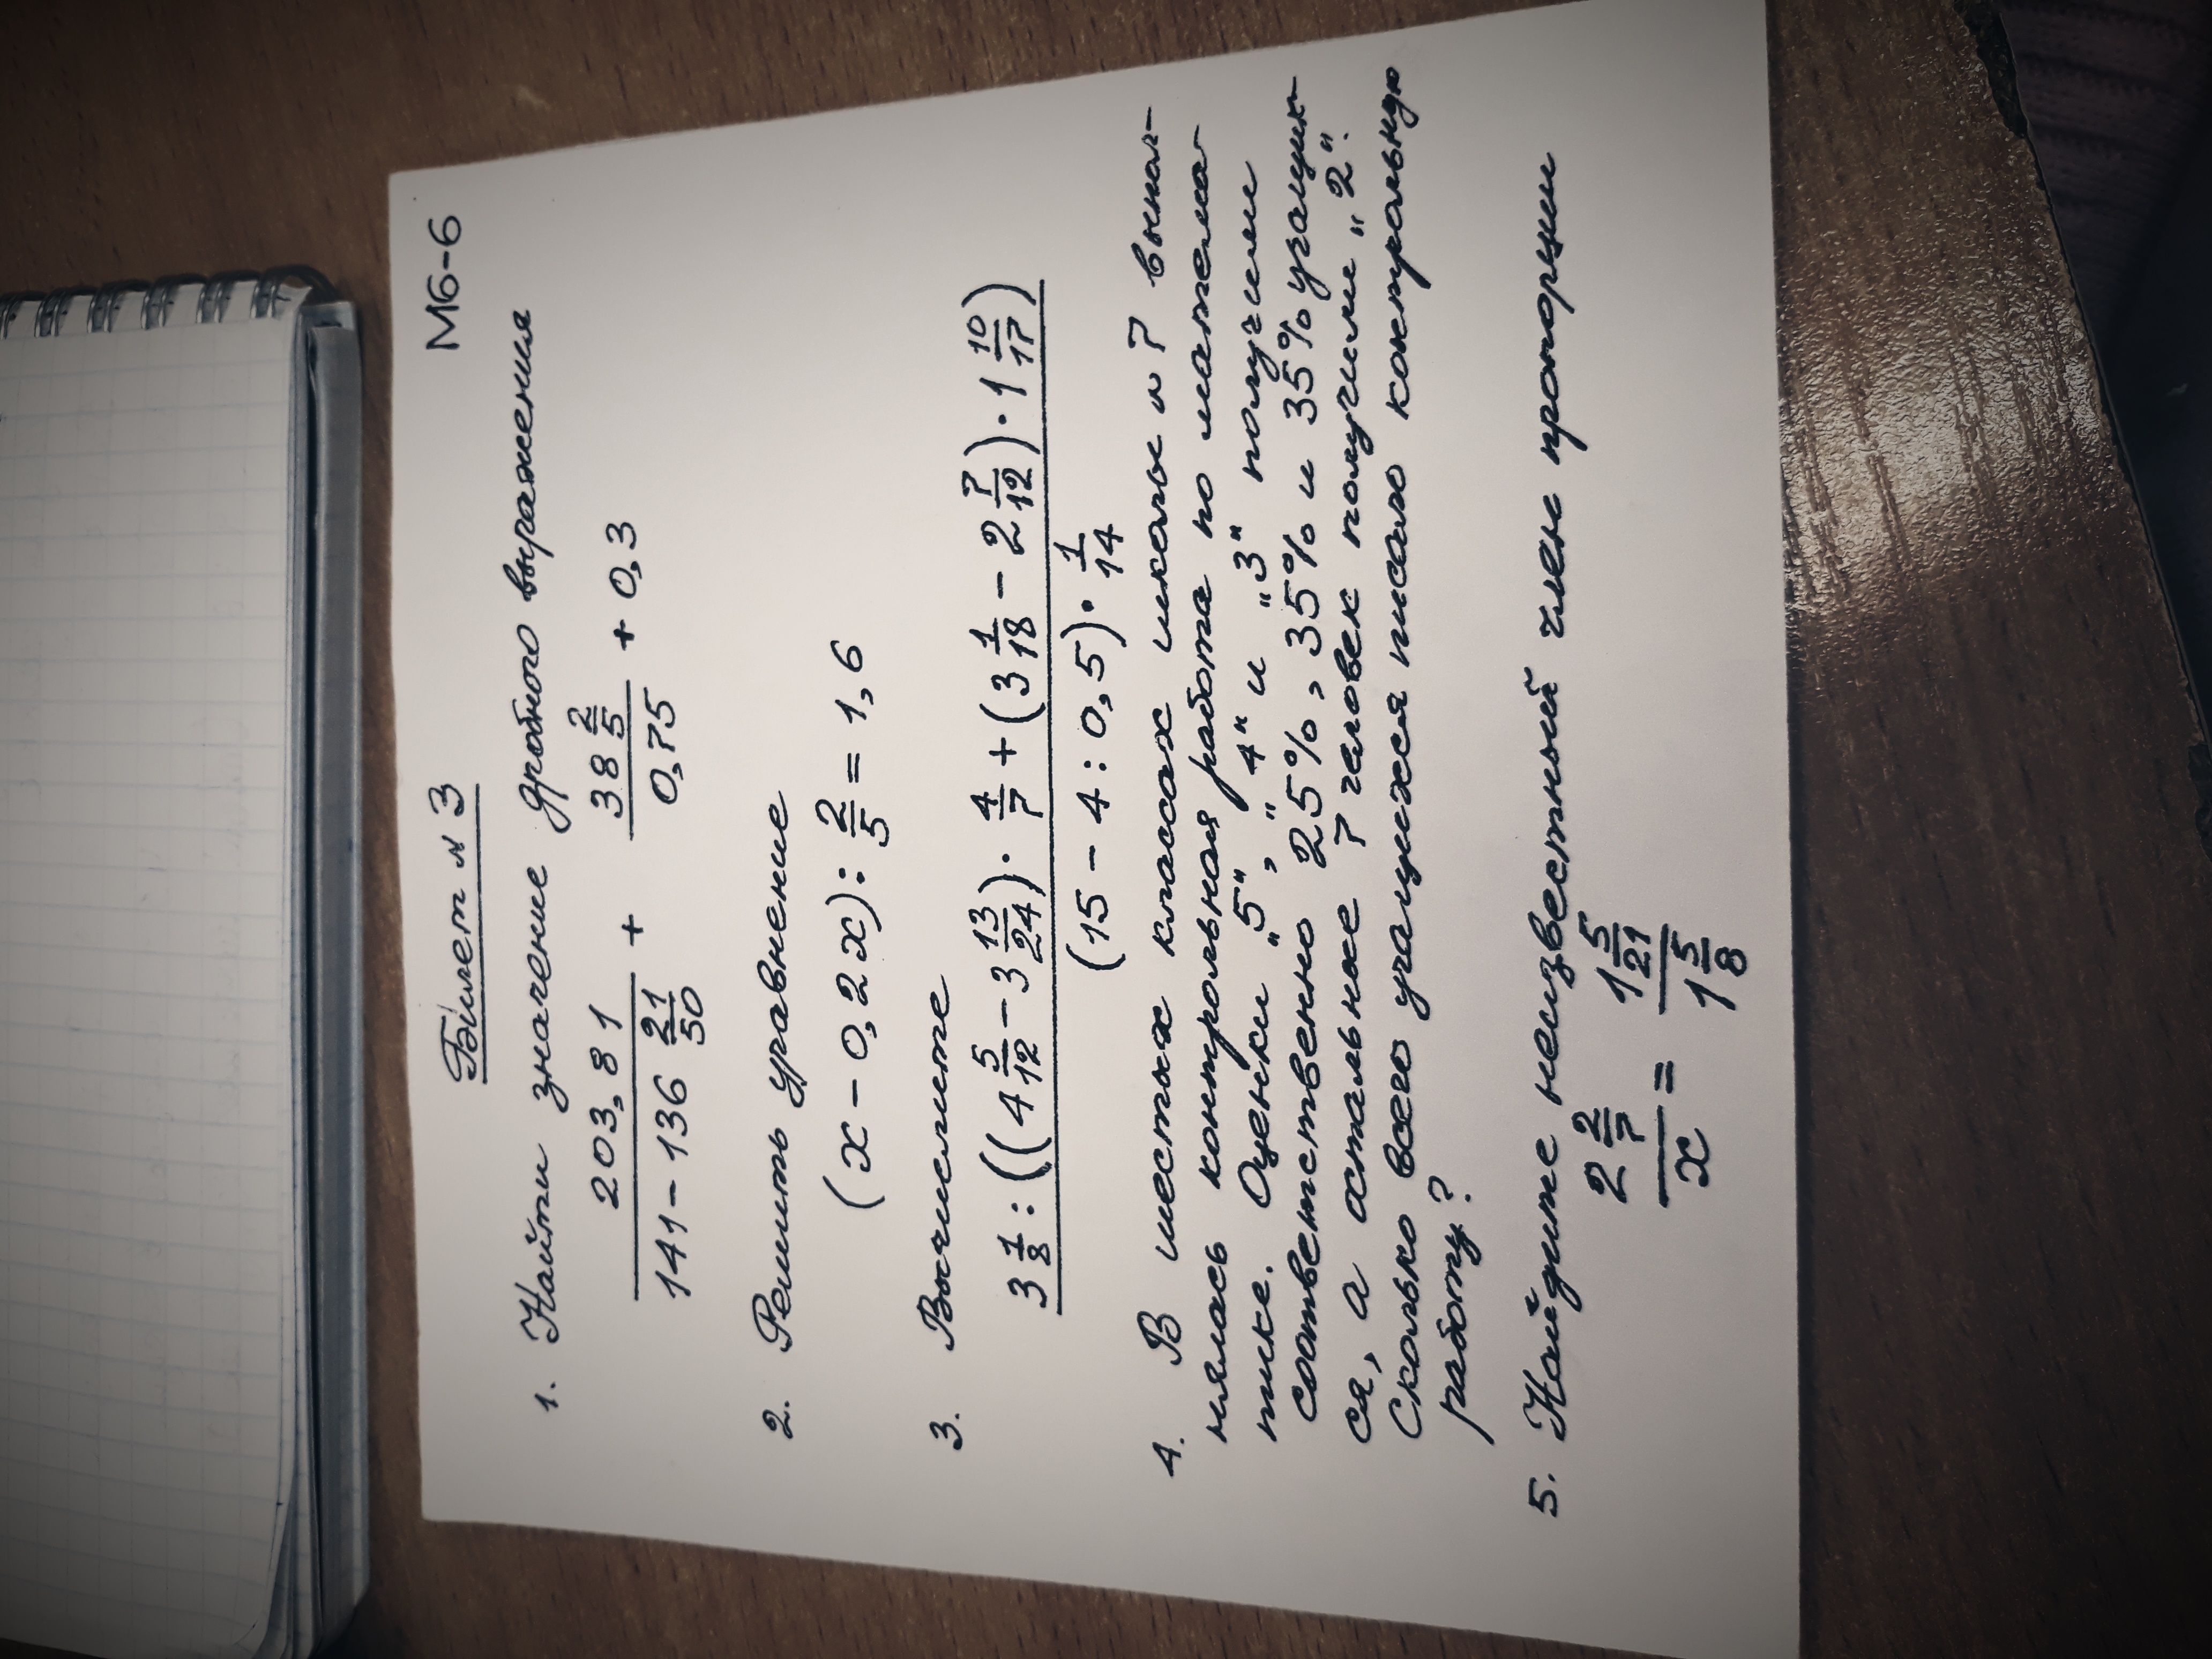 М6-6
Билет № 3
1. Найти значение дробного выражения
203,81/(141 - 136 21/50) + (38 2/5)/0,75 + 0,3
2. Решить уравнение
(x - 0,2x) : 2/5 = 1,6
3. Вычислите
3 1/8 : ((4 5/12 - 3 13/24) · 4/7 + (3 1/18 - 2 7/12) · 1 10/17)
(15 - 4 : 0,5) · 1/14
4. В шестых классах школы №7 выпол-
нялась контрольная работа по матема-
тике. Оценки "5", "4" и "3" получили
соответственно 25%, 35% и 35% учащих-
ся, а остальные 7 человек получили "2".
Сколько всего учащихся писало контрольную
работу?
5. Найдите неизвестный член пропорции
(2 2/7)/x = (1 5/21)/(1 5/8)